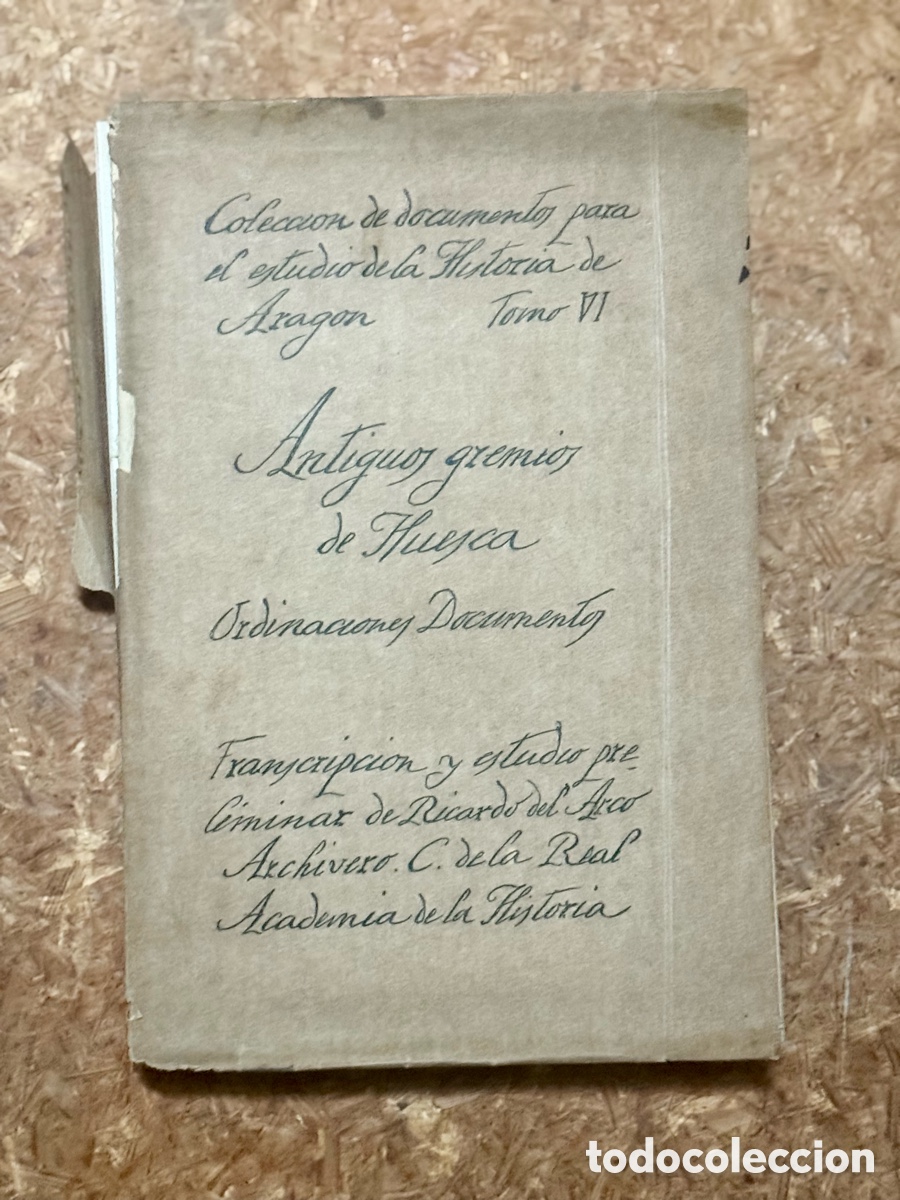 Coleccion de documentos para
el estudio de la Historia de
Aragon Tomo VI
Antiguos gremios
de Huesca
Ordinaciones Documentos
Transcripcion y estudio pre-
liminar de Ricardo del Arco
Archivero. C. de la Real
Academia de la Historia
todocoleccion